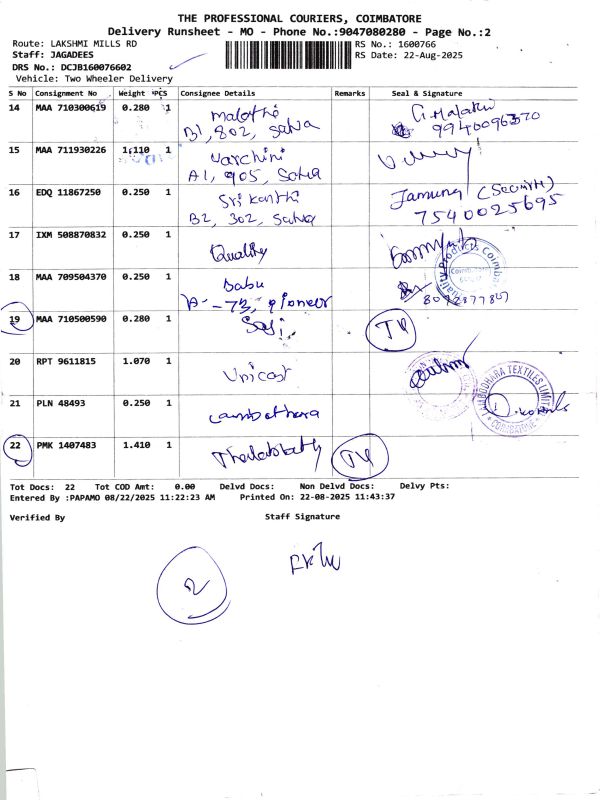 THE PROFESSIONAL COURIERS, COIMBATORE
Delivery Runsheet - MO - Phone No.:9047080280 - Page No.:2
Route: LAKSHMI MILLS RD
RS No.: 1600766
Staff: JAGADEES
RS Date: 22-Aug-2025
DRS No.: DCJB160076602
Vehicle: Two Wheeler Delivery
S No Consignment No Weight PCS Consignee Details Remarks Seal & Signature
14 MAA 710300619 0.280 1 Malathi G. Malathi
B1, 802, Satva
15 MAA 711930226 1.110 1 Varchini
A1, 905, Satva
16 EDQ 11867250 0.250 1 Sri Kanthi Jamuna (Security)
B2, 302, Satva 7540025695
17 IXM 508870832 0.250 1 Quality
Quality Products Coimbatore
18 MAA 709504370 0.250 1 Babu
A - 73, Pioneer
19 MAA 710500590 0.280 1 Saji
20 RPT 9611815 1.070 1 Unicast
21 PLN 48493 0.250 1
TEXTILES LIMITED
COIMBATORE
22 PMK 1407483 1.410 1
Tot Docs: 22 Tot COD Amt: 0.00 Delvd Docs: Non Delvd Docs: Delvy Pts:
Entered By :PAPAMO 08/22/2025 11:22:23 AM Printed On: 22-08-2025 11:43:37
Verified By Staff Signature
2